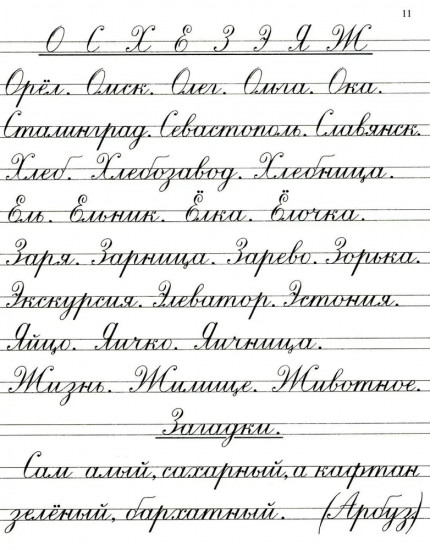 11
О С Х Е З Э Я Ж
Орёл. Омск. Олег. Ольга. Ока.
Сталинград. Севастополь. Славянск.
Хлеб. Хлебозавод. Хлебница.
Ель. Ельник. Ёлка. Ёлочка.
Заря. Зарница. Зарево. Зорька.
Экскурсия. Элеватор. Эстония.
Яйцо. Яичко. Яичница.
Жизнь. Жилище. Животное.
Загадки.
Сам алый, сахарный, а кафтан
зелёный, бархатный. (Арбуз)